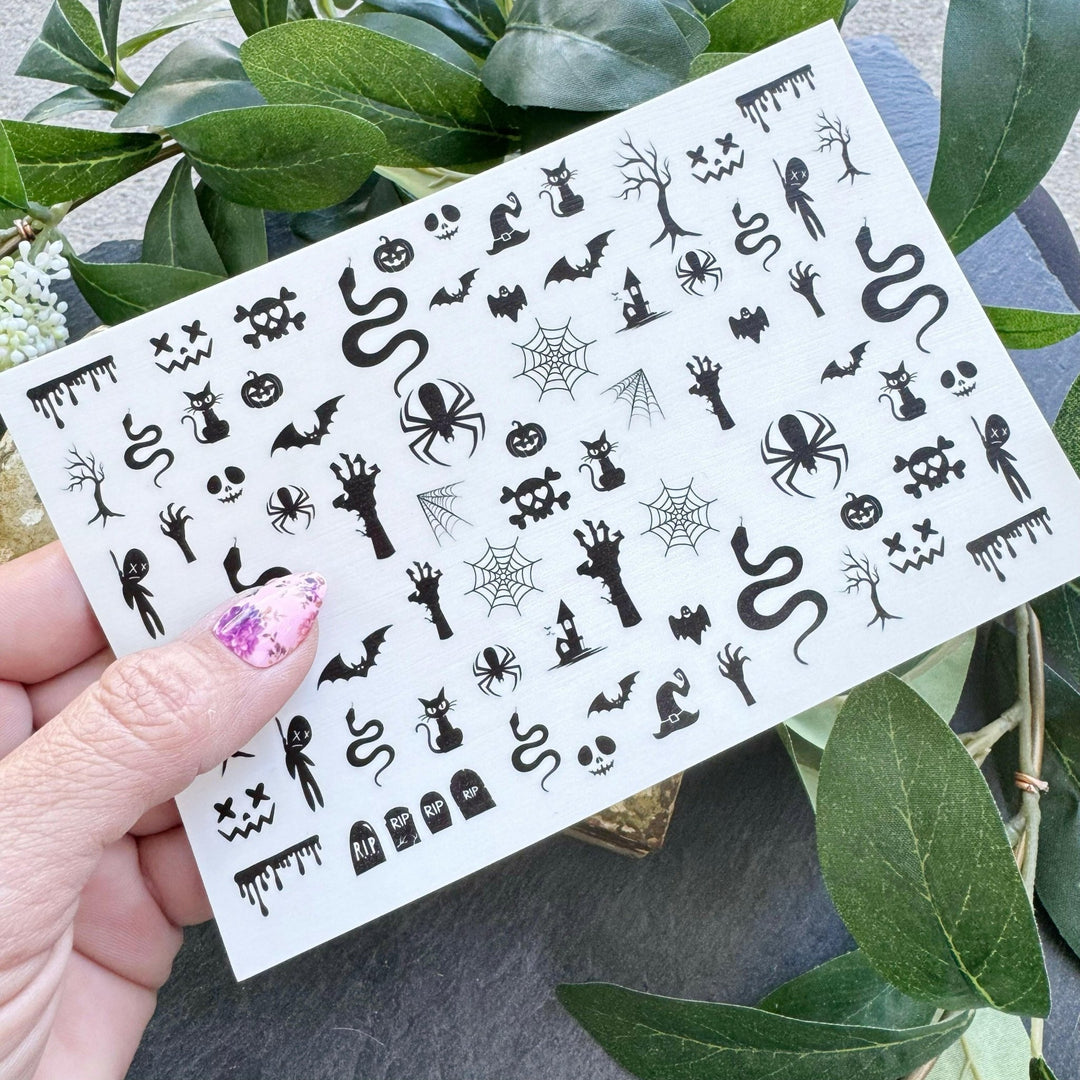 R.I.P.
RIP
RIP
RIP